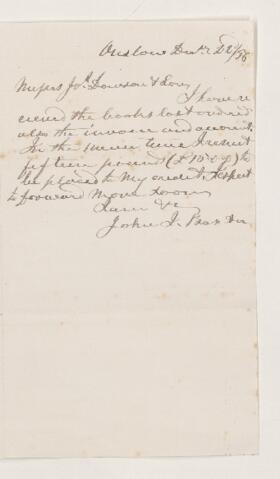 Onslow Decr 22/56
Messrs Jos. Dawson & Son,
I have re
cieved the books last ordered
also the invoice and account.
In the mean time I remit
fifteen pounds (£15-0-0) to
be placed to my credit. I expect
to forward more soon
I am &c
John I. Baxter